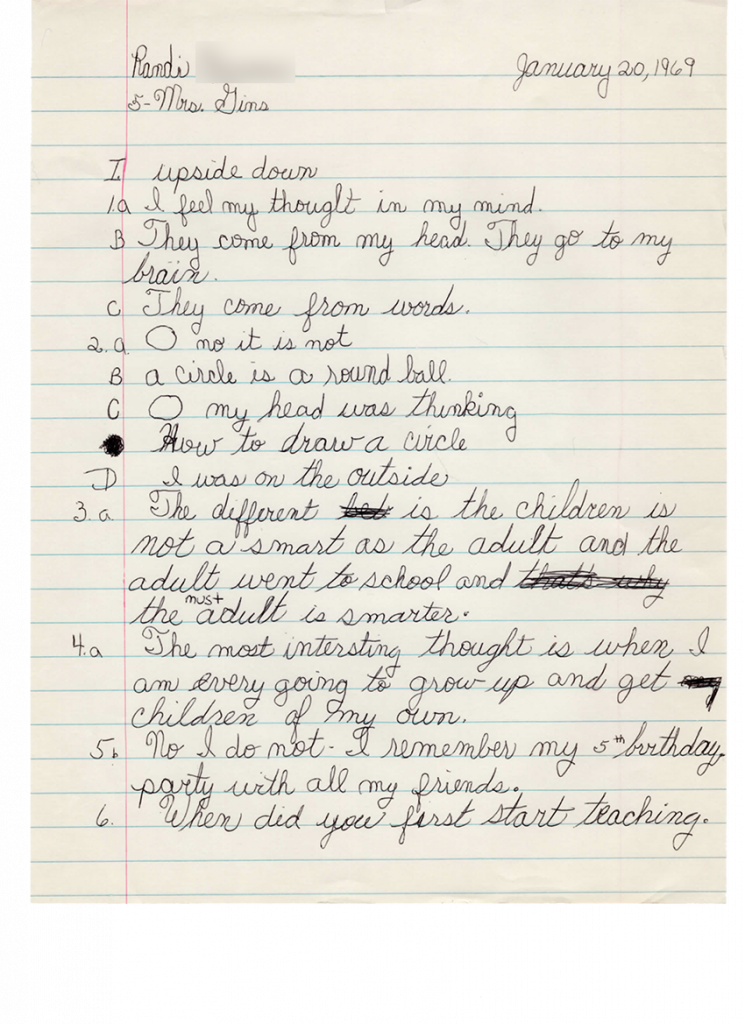 Randi January 20, 1969
5-Mrs. Gins
I upside down
1.a I feel my thought in my mind.
B They come from my head. They go to my
brain.
C They come from words.
2.a no it is not
B a circle is a round ball.
C my head was thinking
How to draw a circle
D I was on the outside
3.a The different is the children is
not a smart as the adult and the
adult went to school and that's why
the must adult is smarter.
4.a The most intersting thought is when I
am every going to grow up and get my
children of my own.
5b No I do not. I remember my 5th birthday
party with all my friends.
6. When did you first start teaching.